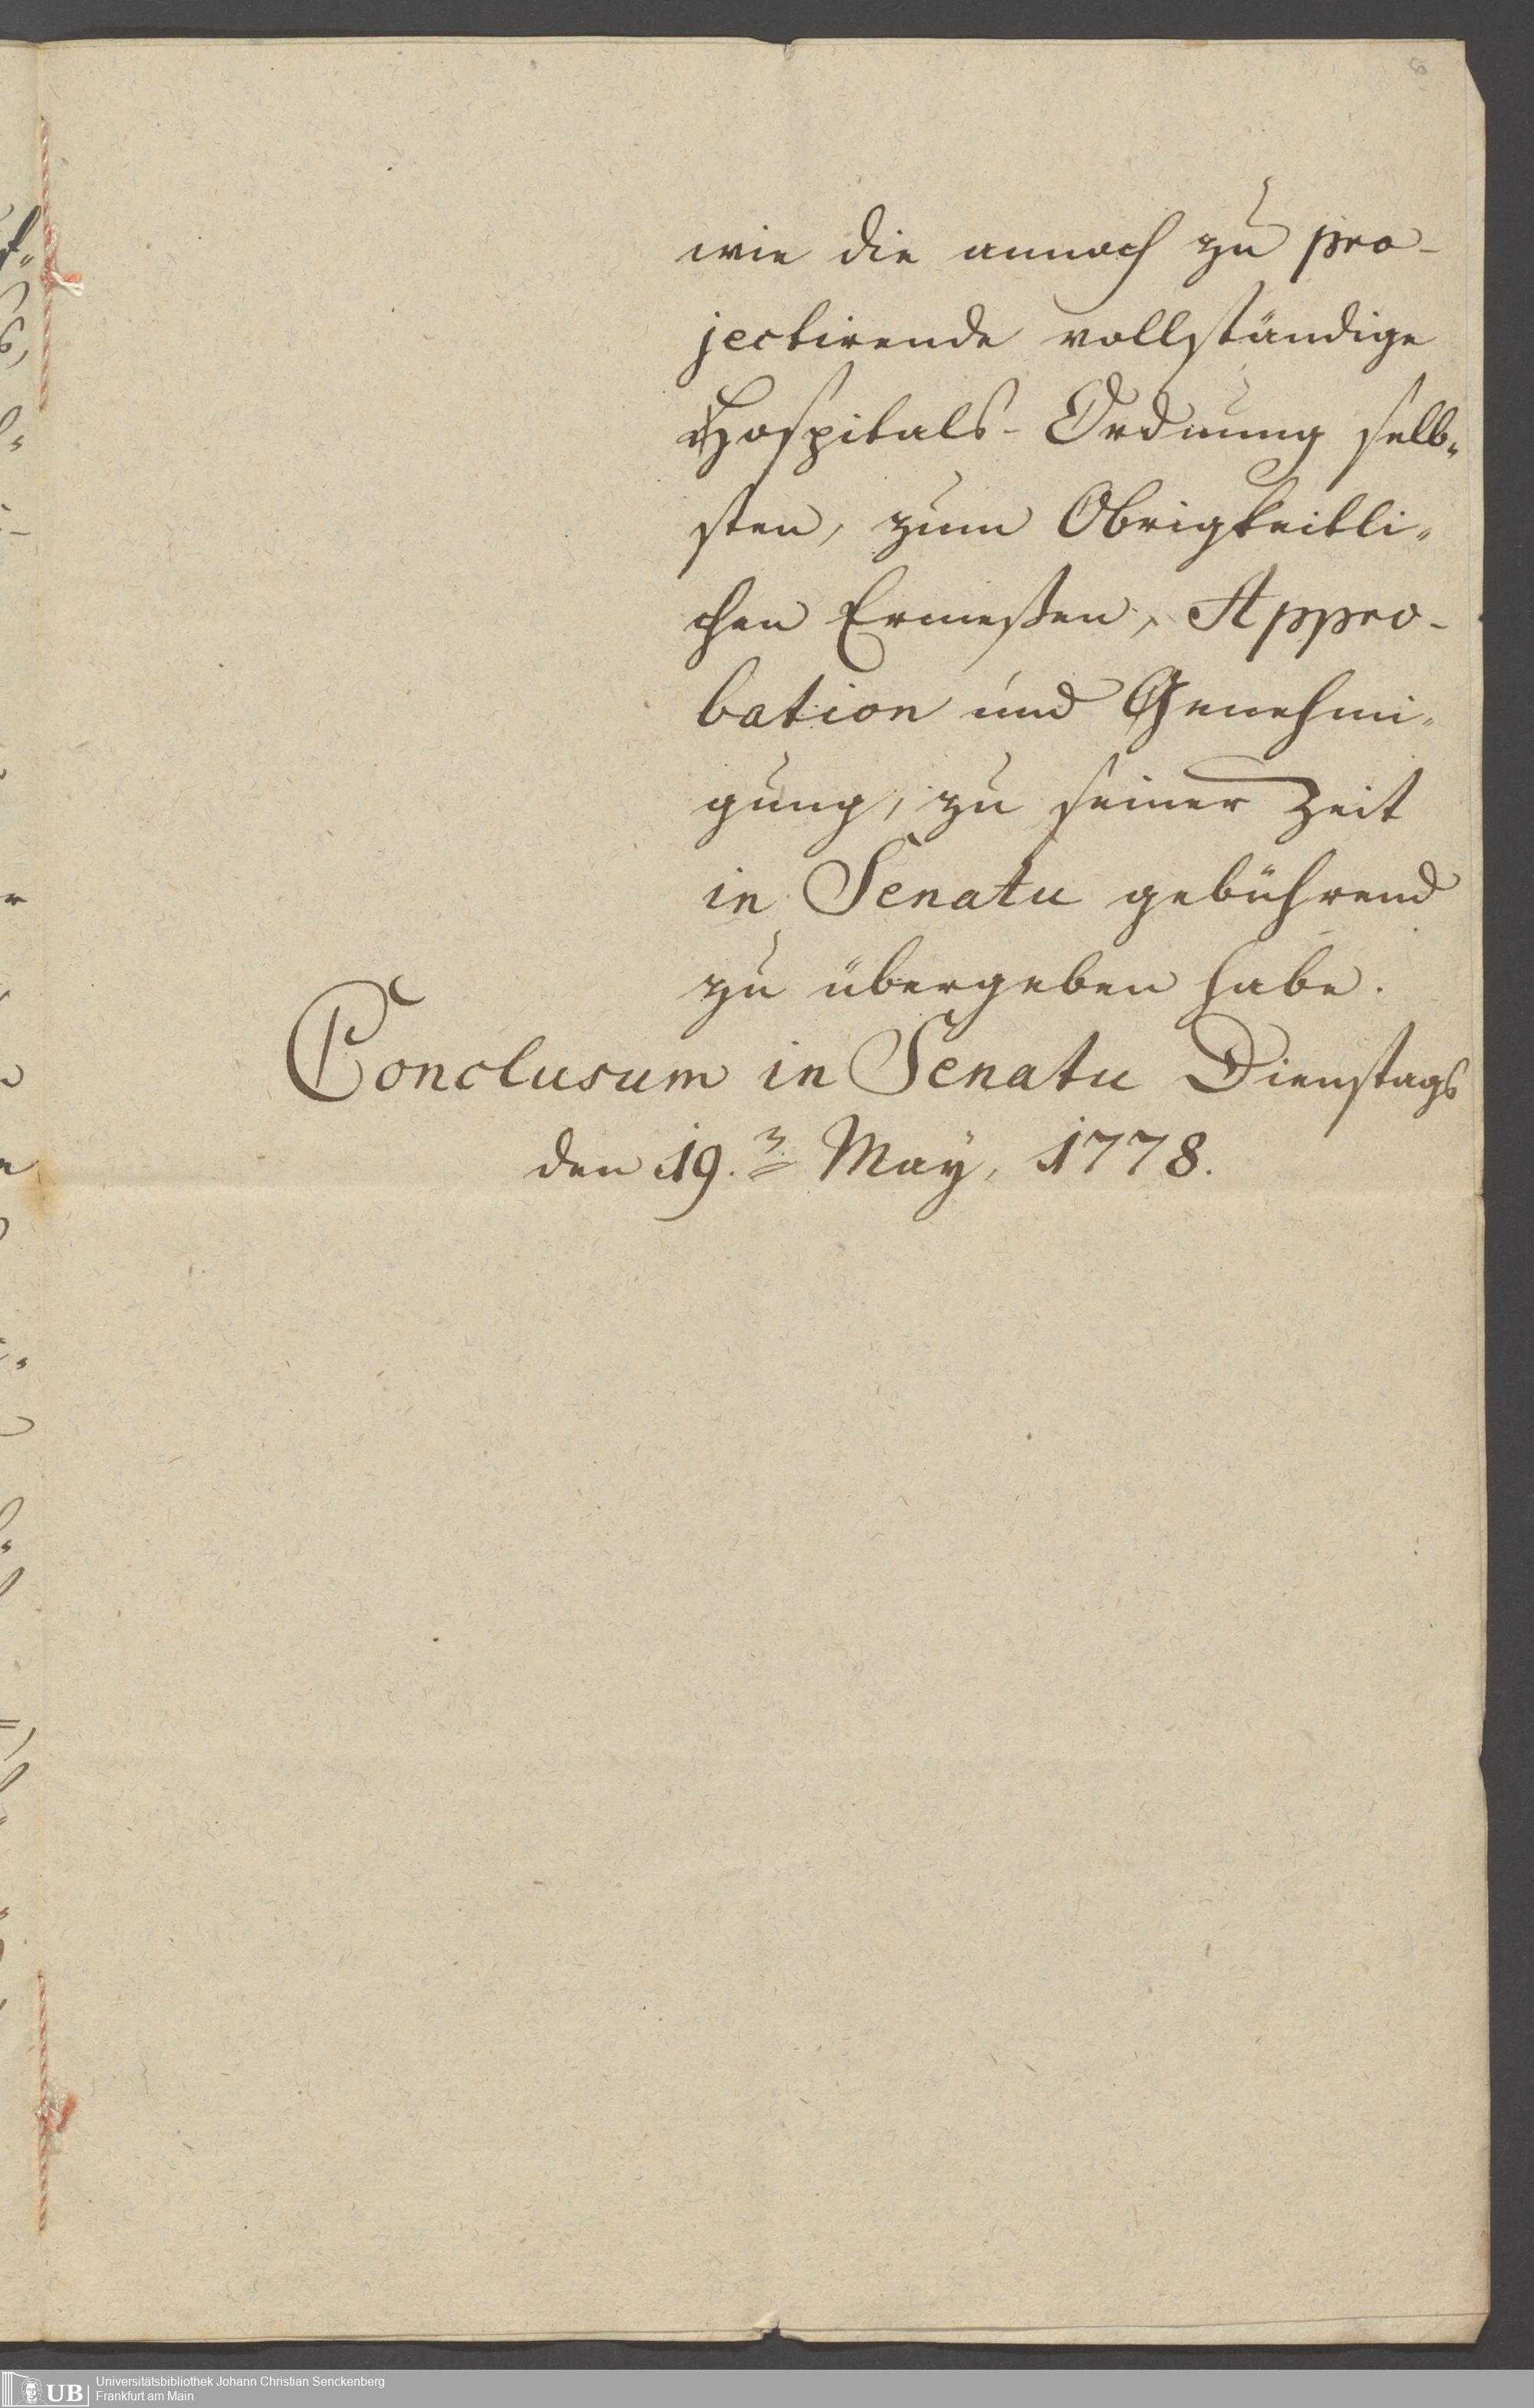 6
wie die annoch zu pro-
jectirende vollständige
Hospitals-Ordnung selb„
sten, zum Obrigkeitli„
chen Ermeßen, Appro-
bation und Genehmi„
gung, zu seiner Zeit
in Senatu gebührend
zu übergeben habe.
Conclusum in Senatu Dienstags
den 19. May, 1778.
UB Universitätsbibliothek Johann Christian Senckenberg
Frankfurt am Main